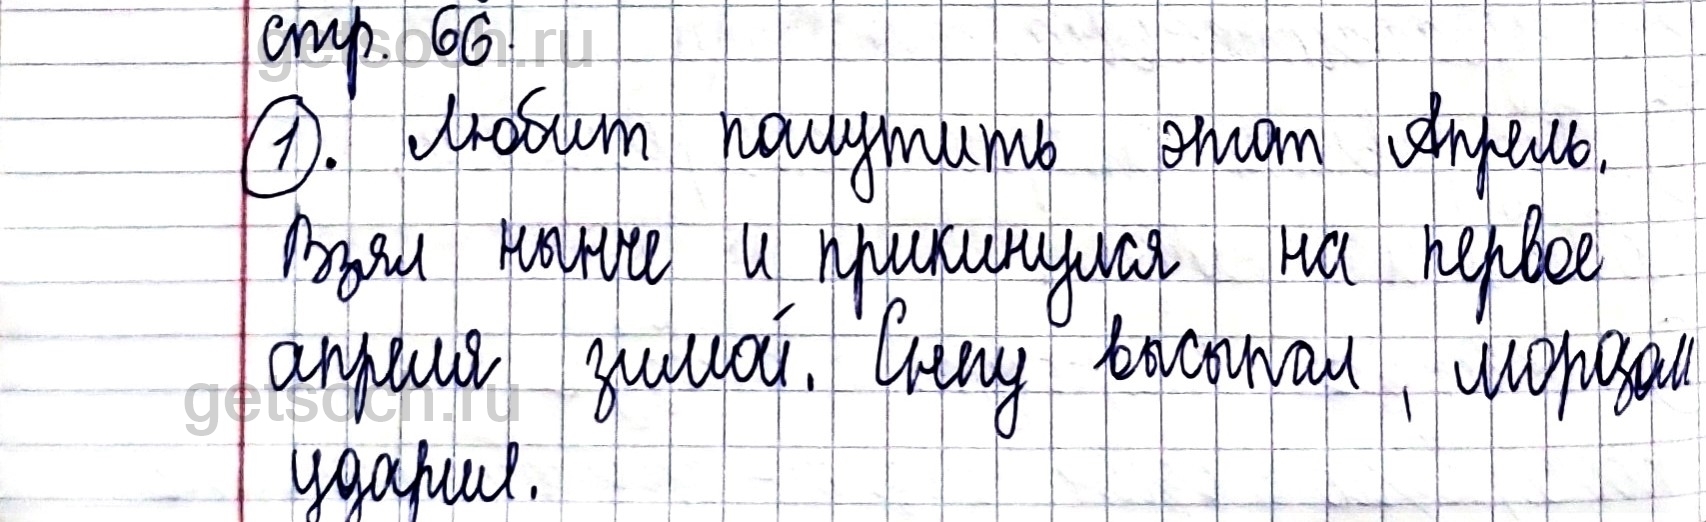 стр. 66.
1). Любит пошутить этот Апрель.
Взял нынче и прикинулся на первое
апреля зимой. Снегу высыпал, морозом
ударил.
getsoch.ru
getsoch.ru